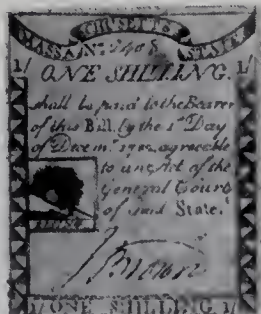 MASSACHUSETTS STATE
No:
1/ ONE SHILLING. 1/
shall be paid to the Bearer
of this Bill, by the 1st Day
of Decem.r 1782, agreeable
to an Act of the
General Court
of said State.
1/ ONE SHILLING. 1/